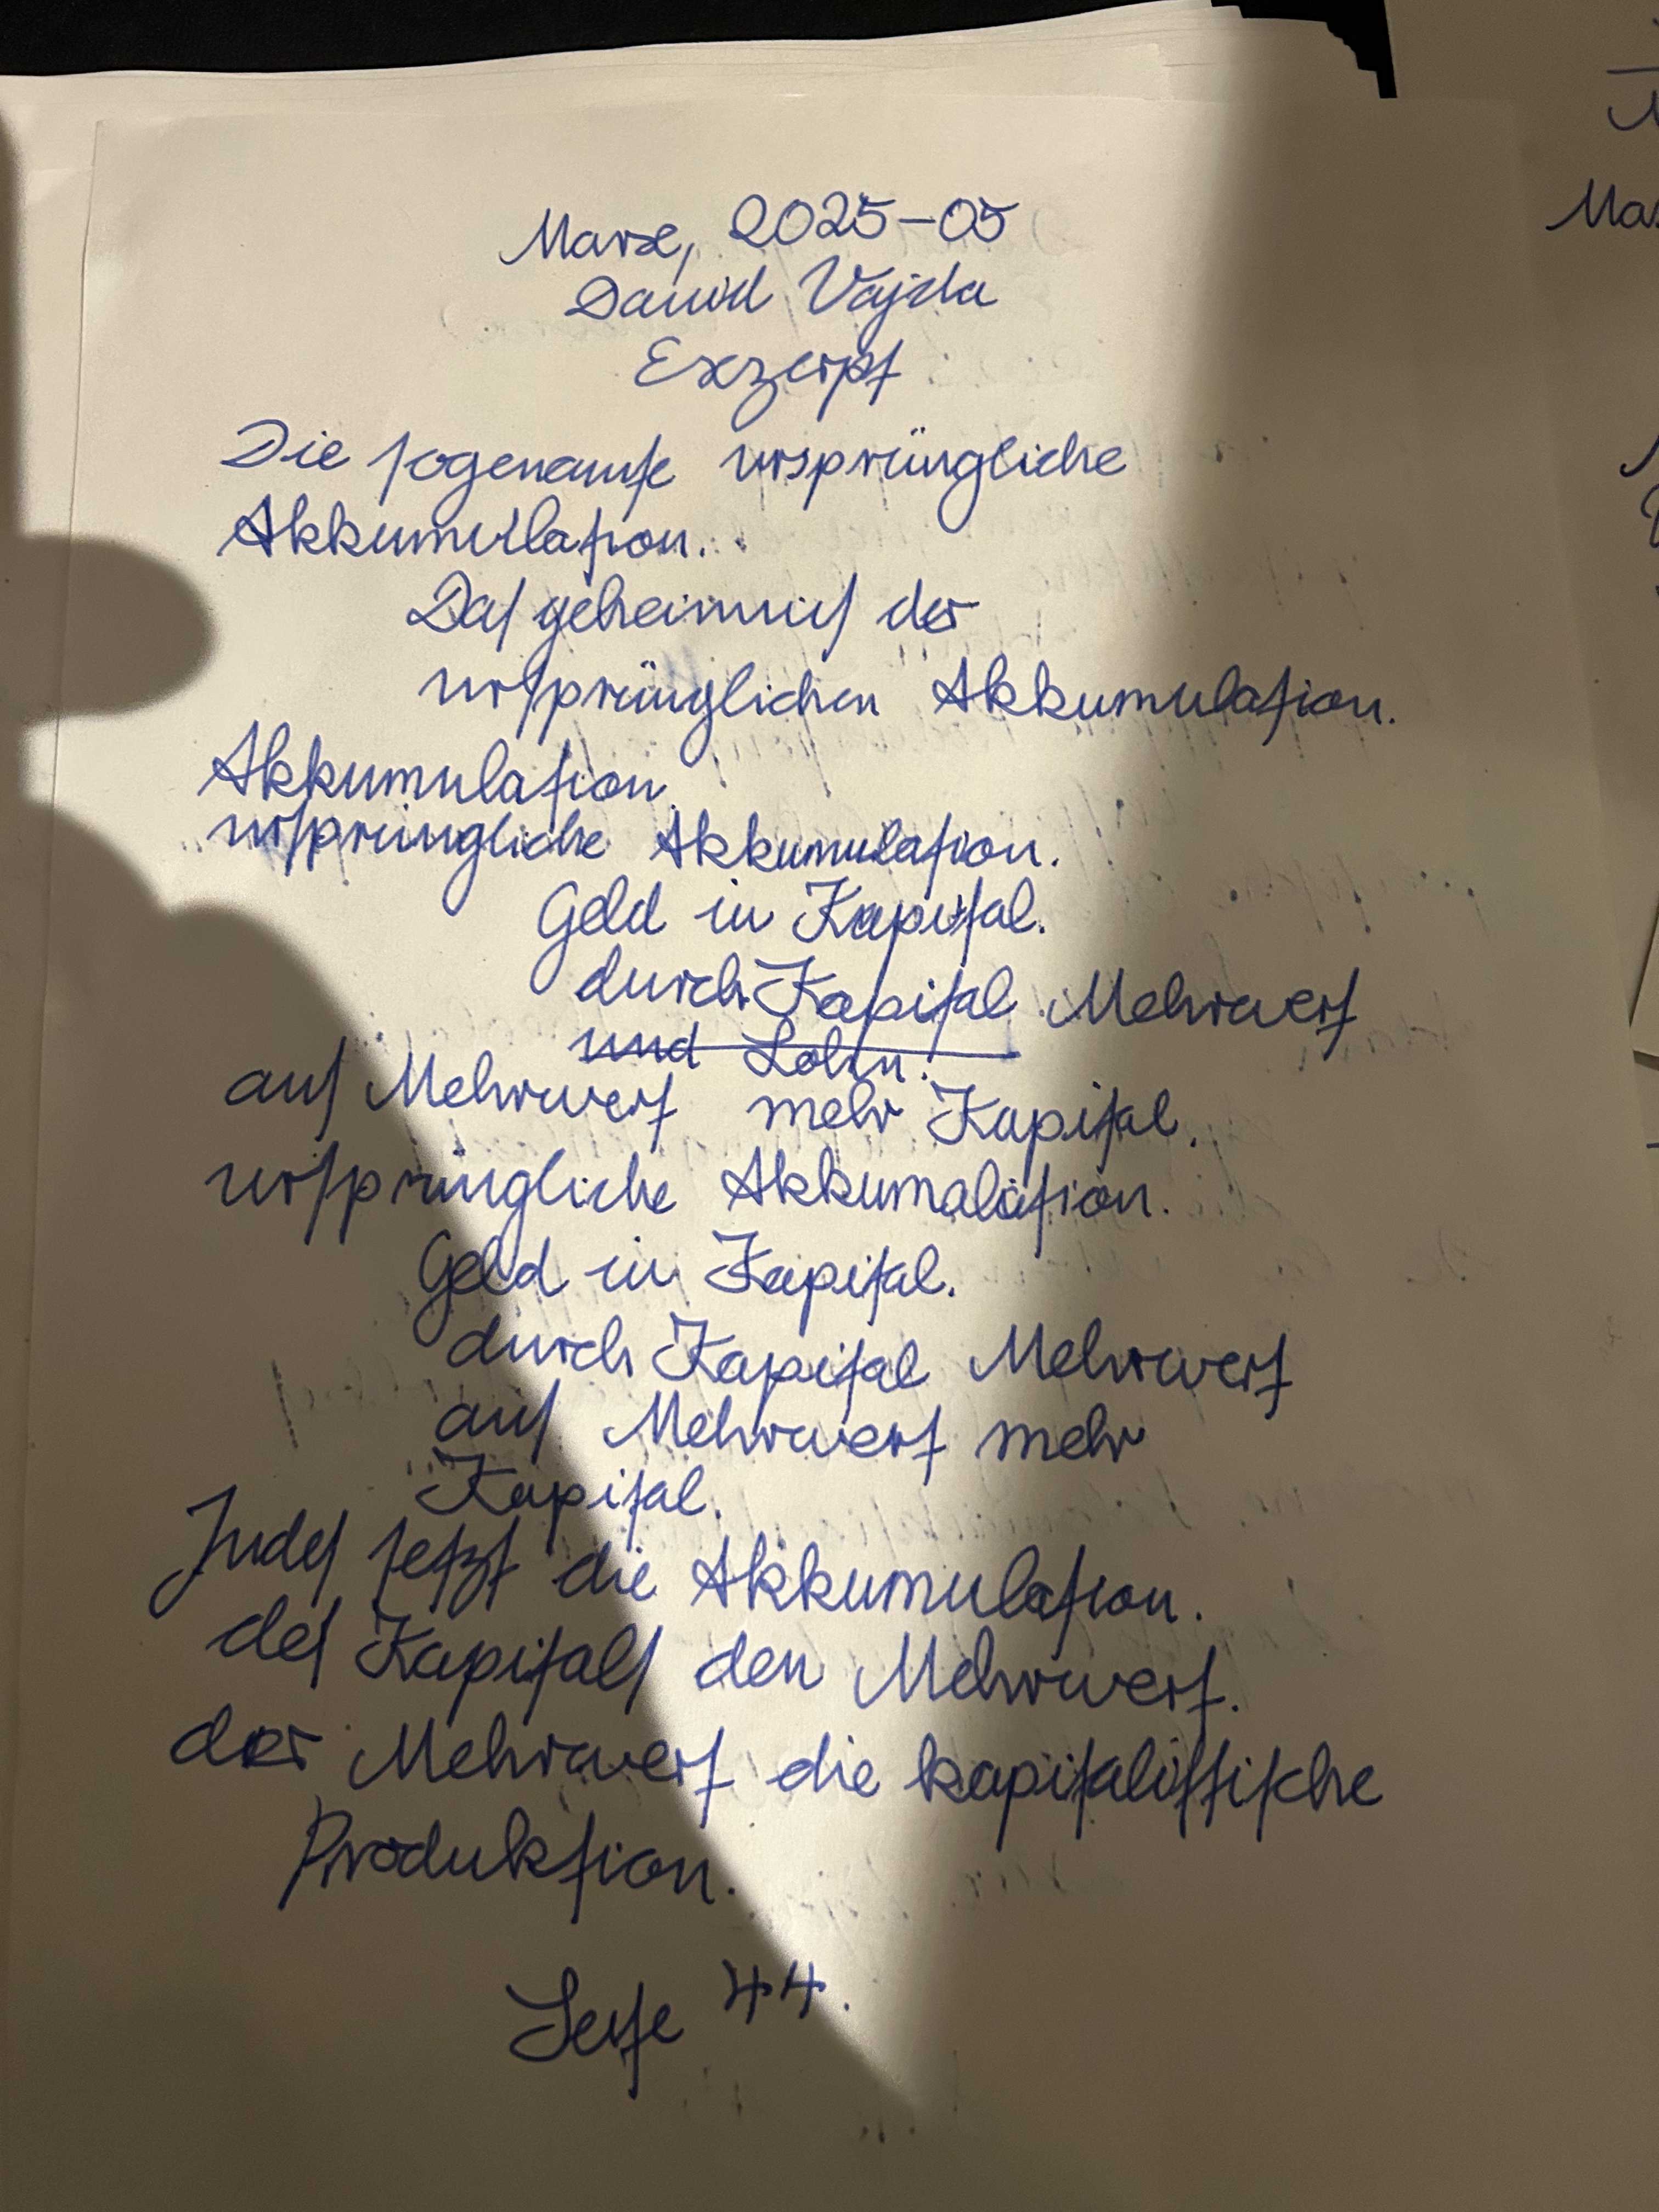 Marx, 2025-05
David Vajda
Exzerpt
Die sogenannte ursprüngliche
Akkumulation.
Das geheimnis der
ursprünglichen Akkumulation.
Akkumulation.
ursprüngliche Akkumulation.
Geld in Kapital.
durch Kapital Mehrwert
und Lohn.
aus Mehrwert mehr Kapital.
ursprüngliche Akkumalation.
Geld in Kapital.
durch Kapital Mehrwert
aus Mehrwert mehr
Kapital.
Indes setzt die Akkumulation.
des Kapitals den Mehrwert.
der Mehrwert die kapitalistische
Produktion.
Seite 44.